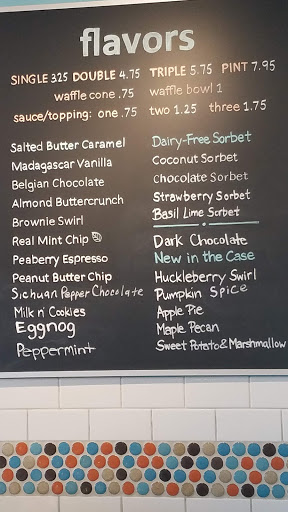 flavors
SINGLE 3.25 DOUBLE 4.75 TRIPLE 5.75 PINT 7.95
waffle cone .75 waffle bowl 1
sauce/topping: one .75 two 1.25 three 1.75
Salted Butter Caramel
Madagascar Vanilla
Belgian Chocolate
Almond Buttercrunch
Brownie Swirl
Real Mint Chip
Peaberry Espresso
Peanut Butter Chip
Sichuan Pepper Chocolate
Milk n' Cookies
Eggnog
Peppermint
Dairy-Free Sorbet
Coconut Sorbet
Chocolate Sorbet
Strawberry Sorbet
Basil Lime Sorbet
Dark Chocolate
New in the Case
Huckleberry Swirl
Pumpkin Spice
Apple Pie
Maple Pecan
Sweet Potato & Marshmallow